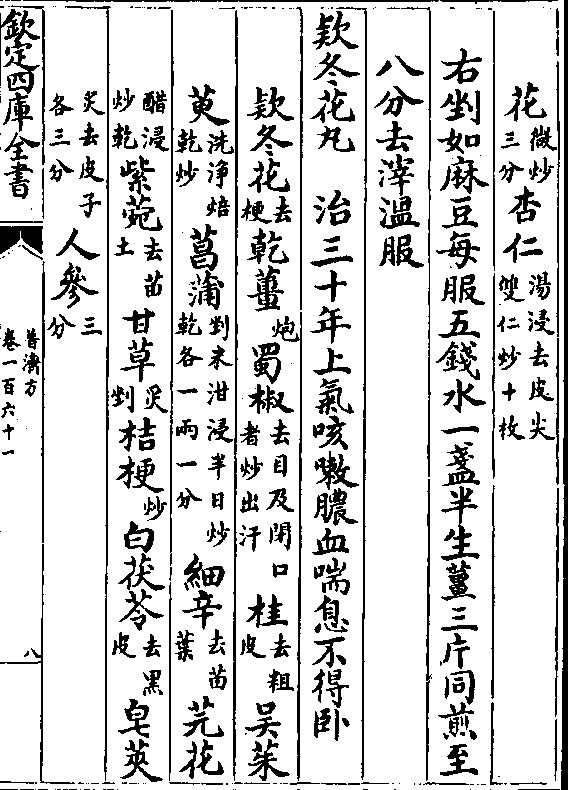 花微炒三分杏仁湯浸去皮尖雙仁炒十枚
右剉如麻豆每服五錢水一盞半生薑三片同煎至
八分去滓温服
欵冬花丸　治三十年上氣咳嗽膿血喘息不得卧
欵冬花去梗乾薑炮蜀椒去目及閉口者炒出汗桂去粗皮吴茱
萸洗浄焙乾炒菖蒲剉米泔浸半日炒乾各一兩一分細辛去苗葉芫花
醋浸炒乾紫菀去苗土甘草炙剉桔梗炒白茯苓去黒皮皂莢
炙去皮子各三分人參三分
欽定四庫全書
普濟方
卷一百六十一
八